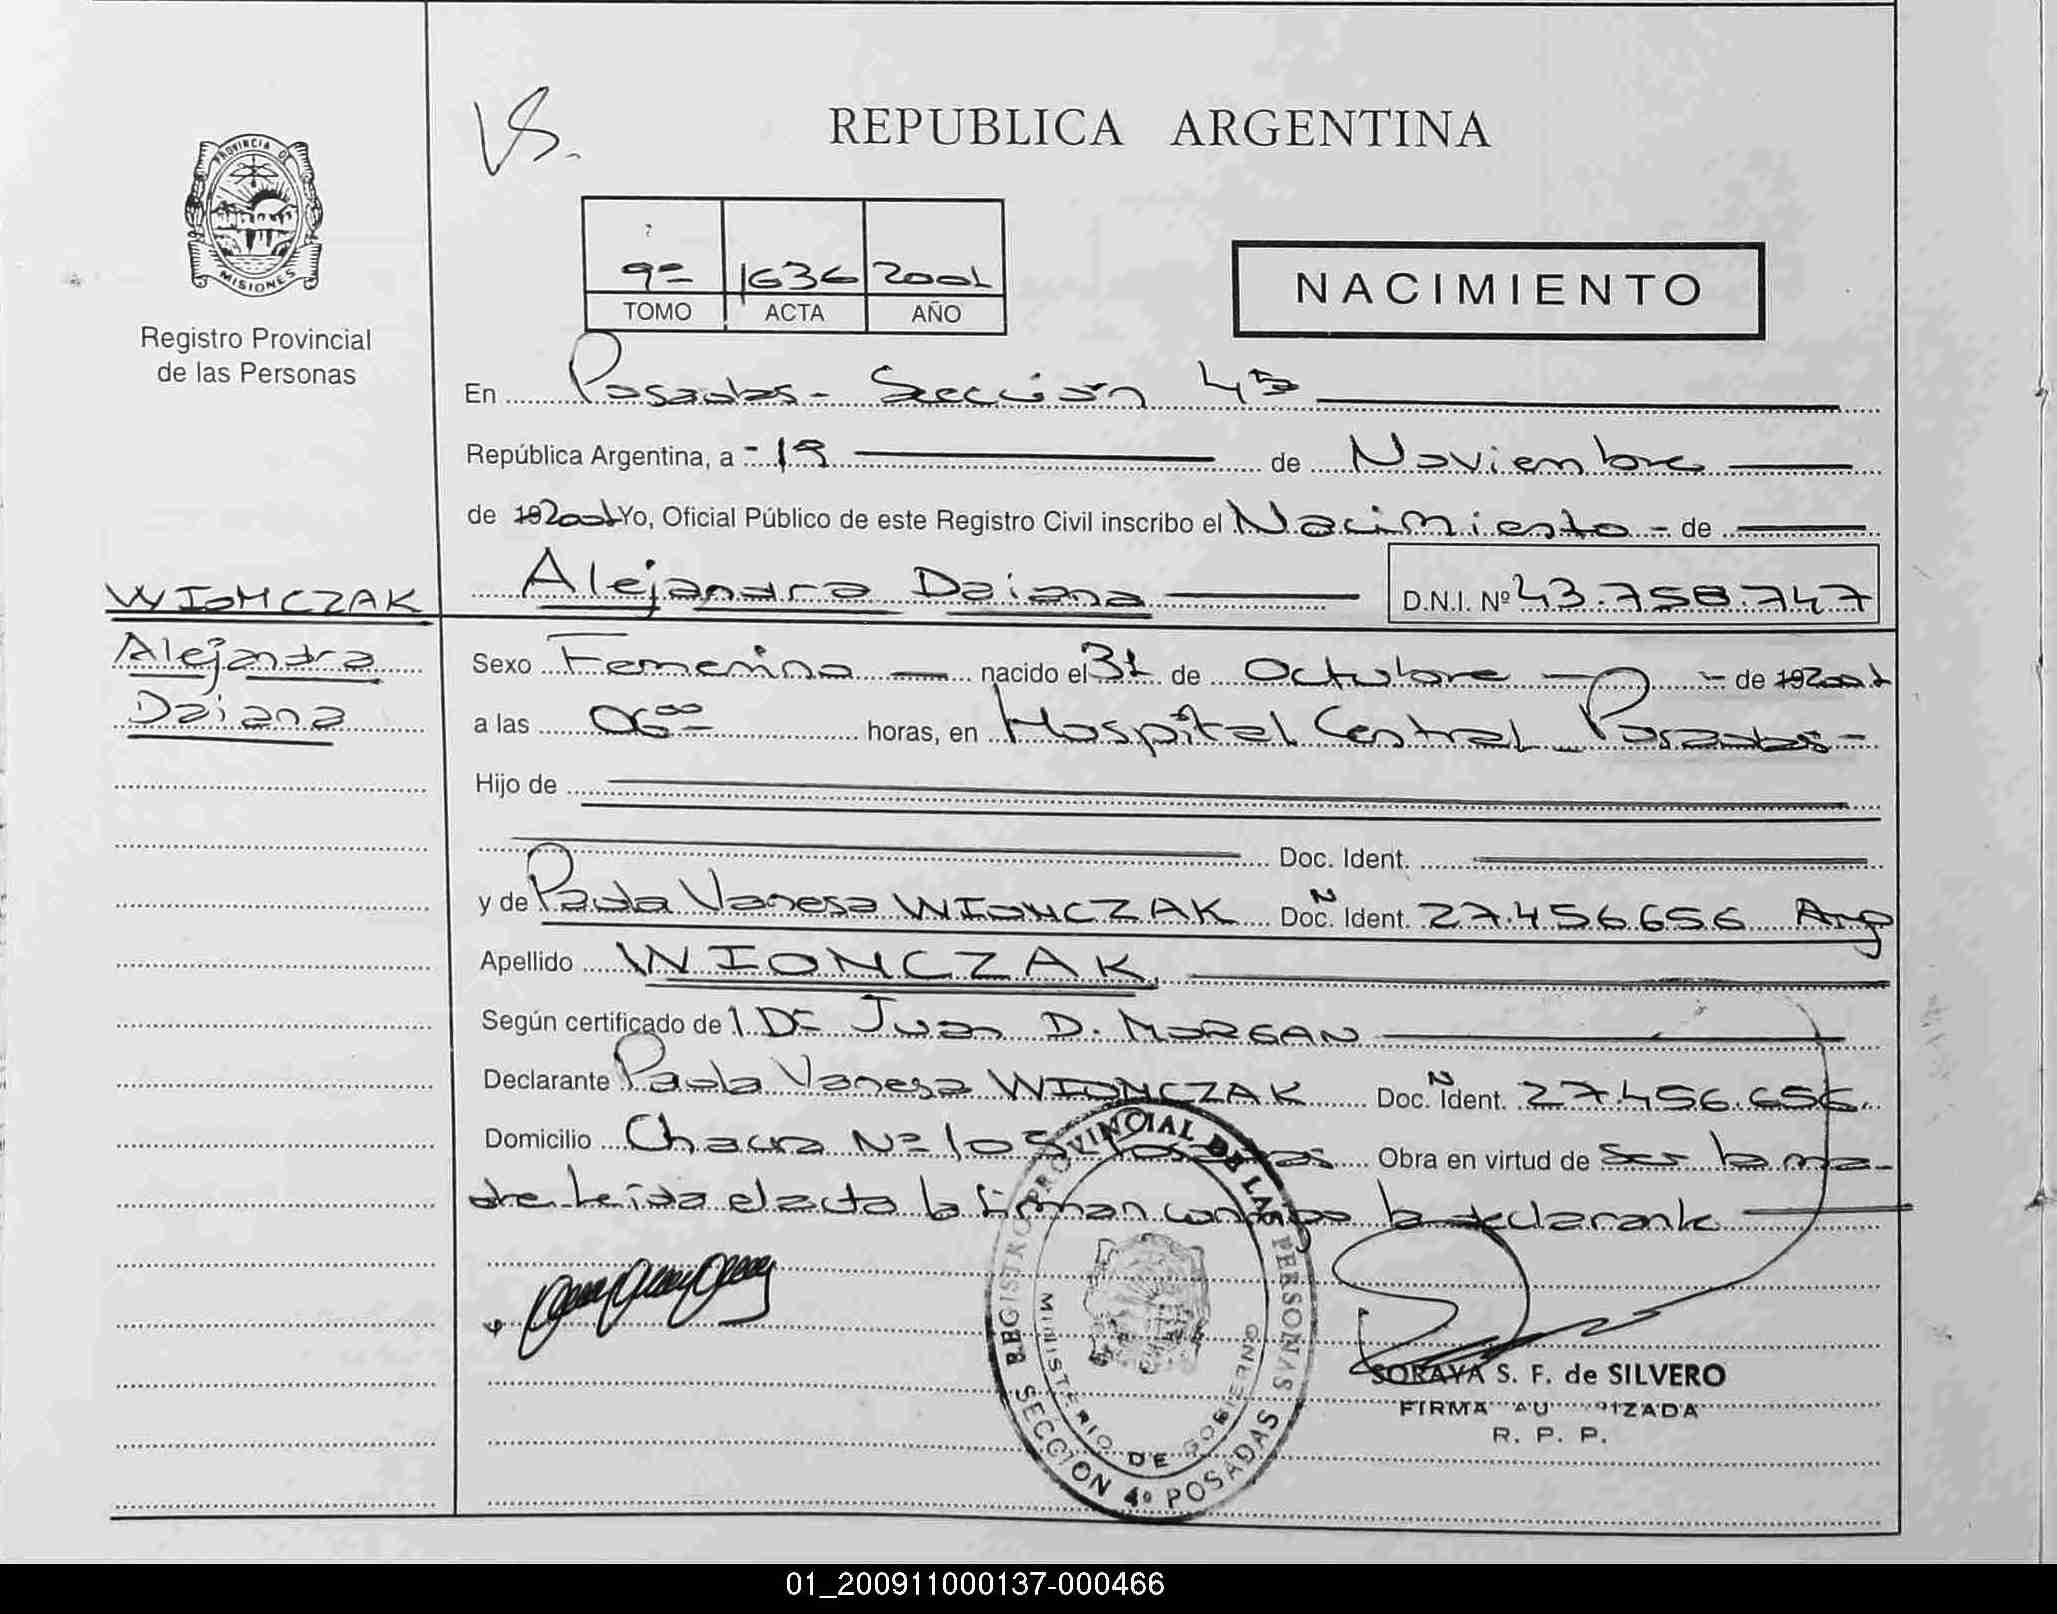 VS.
REPUBLICA ARGENTINA
PROVINCIA DE
MISIONES
Registro Provincial
de las Personas
9º 1636 2001
TOMO ACTA AÑO
NACIMIENTO
En Posadas - Sección 4ª
República Argentina, a - 19 de Noviembre
de 192001 Yo, Oficial Público de este Registro Civil inscribo el Nacimiento - de
Alejandra Daiana D.N.I. Nº 43.758.747
WIONCZAK
Alejandra
Daiana
Sexo Femenino nacido el 31 de Octubre - de 192001
a las 06⁰⁰ horas, en Hospital Central Posadas -
Hijo de
Doc. Ident.
y de Paula Vanesa WIONCZAK Doc. N Ident. 27.456.656 Arg
Apellido WIONCZAK
Según certificado de 1 Dr Juan D. MORGAN
Declarante Paula Vanesa WIONCZAK Doc. N Ident. 27.456.656.
Domicilio Chacra Nº 105 Posadas Obra en virtud de Ser la ma-
dre leida el acta la firman conmigo la declarante
REGISTRO PROVINCIAL DE LAS PERSONAS
MINISTERIO DE GOBIERNO
SECCION 4º POSADAS
SORAYA S. F. de SILVERO
FIRMA AU IZADA
R. P. P.
01_200911000137-000466